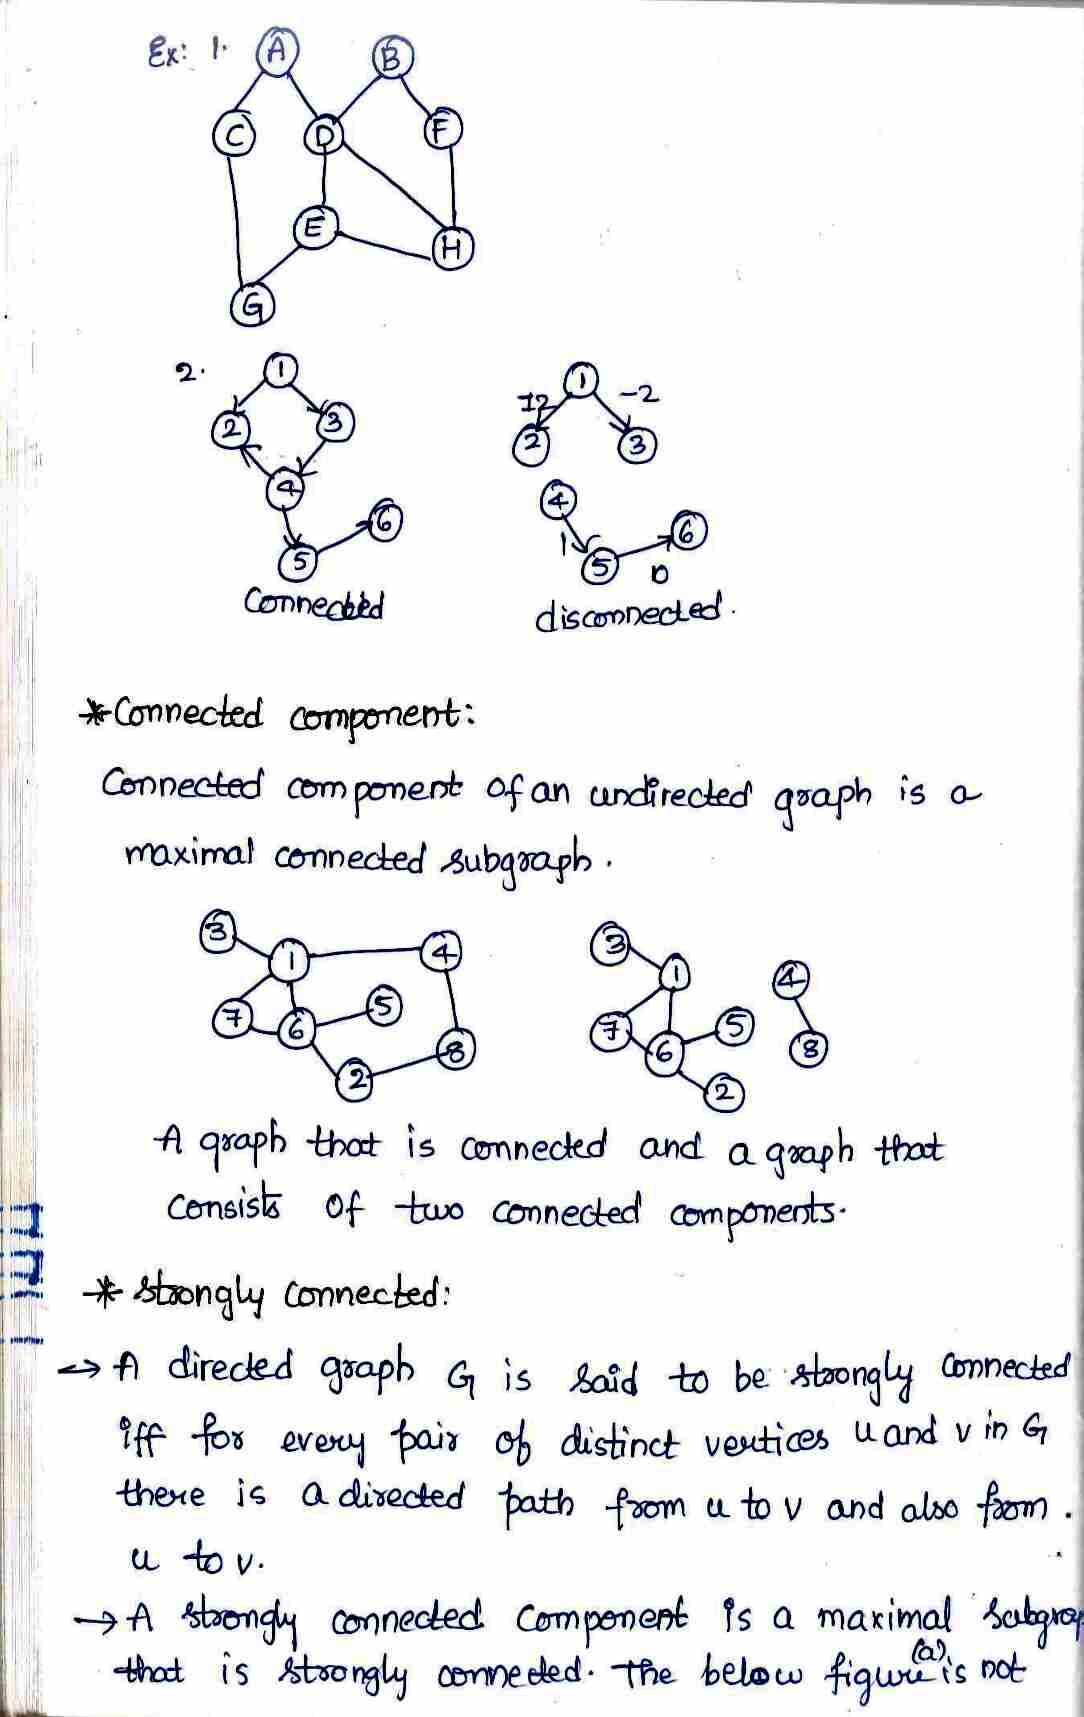 Ex: 1.
A
B
C
D
F
E
H
G
2.
1
2
3
4
5
6
Connected
1
12
-2
2
3
4
1
5
6
0
disconnected.
* Connected component:
Connected component of an undirected graph is a
maximal connected subgraph.
3
1
4
7
6
5
2
8
3
1
4
7
6
5
2
8
A graph that is connected and a graph that
consists of two connected components.
* strongly connected:
→ A directed graph G is said to be strongly connected
iff for every pair of distinct vertices u and v in G
there is a directed path from u to v and also from.
u to v.
→ A strongly connected component is a maximal subgrap
that is strongly connected. The below figure (a) is not